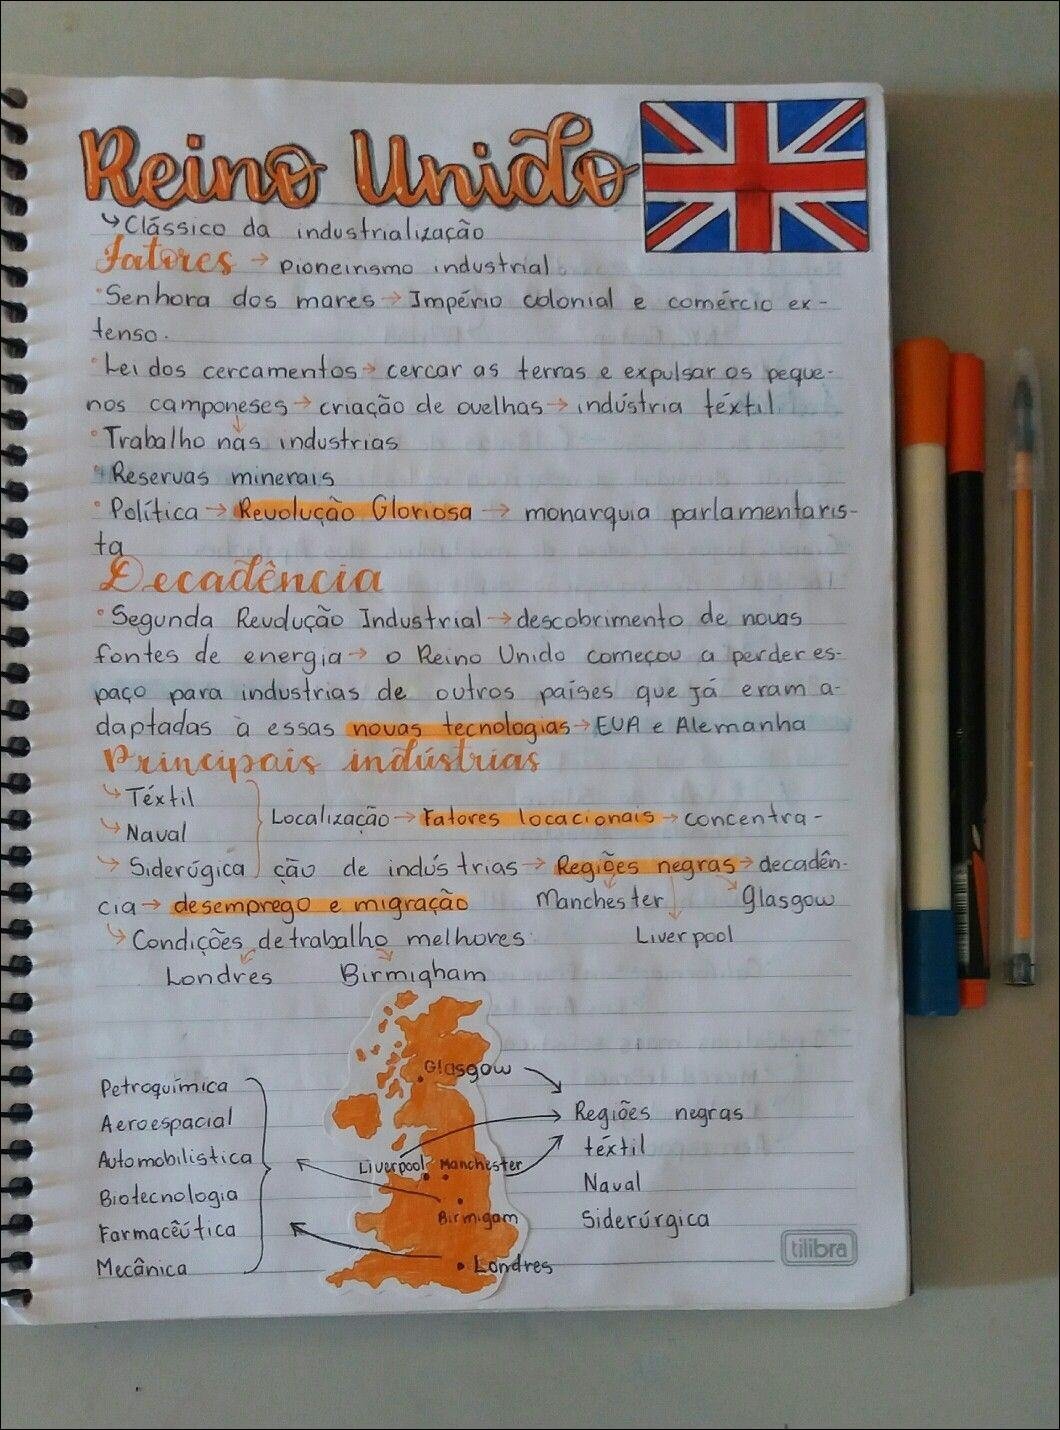 Reino Unido
↳ Clássico da industrialização
Fatores → pioneirismo industrial
• Senhora dos mares → Império colonial e comércio ex-
tenso.
• Lei dos cercamentos → cercar as terras e expulsar os peque-
nos camponeses → criação de ovelhas → indústria téxtil
↓
• Trabalho nas industrias
• Reservas minerais
• Política → Revolução Gloriosa → monarquia parlamentaris-
ta
Decadência
• Segunda Revdução Industrial → descobrimento de novas
fontes de energia → o Reino Unido começou a perder es-
paço para industrias de outros países que já eram a-
daptadas à essas novas tecnologias → EUA e Alemanha
Principais indústrias
↳ Téxtil
↳ Naval
Localização → Fatores locacionais → concentra-
↳ Siderúgica
ção de indústrias → Regiões negras → decadên-
cia → desemprego e migração
Manchester
Glasgow
↳ Condições de trabalho melhores
Liverpool
Londres
Birmigham
Glasgow
Petroquímica
Aeroespacial
Automobilistica
Biotecnologia
Farmacêutica
Mecânica
Liverpool
Manchester
Birmigam
Londres
Regiões negras
téxtil
Naval
Siderúrgica
tilibra